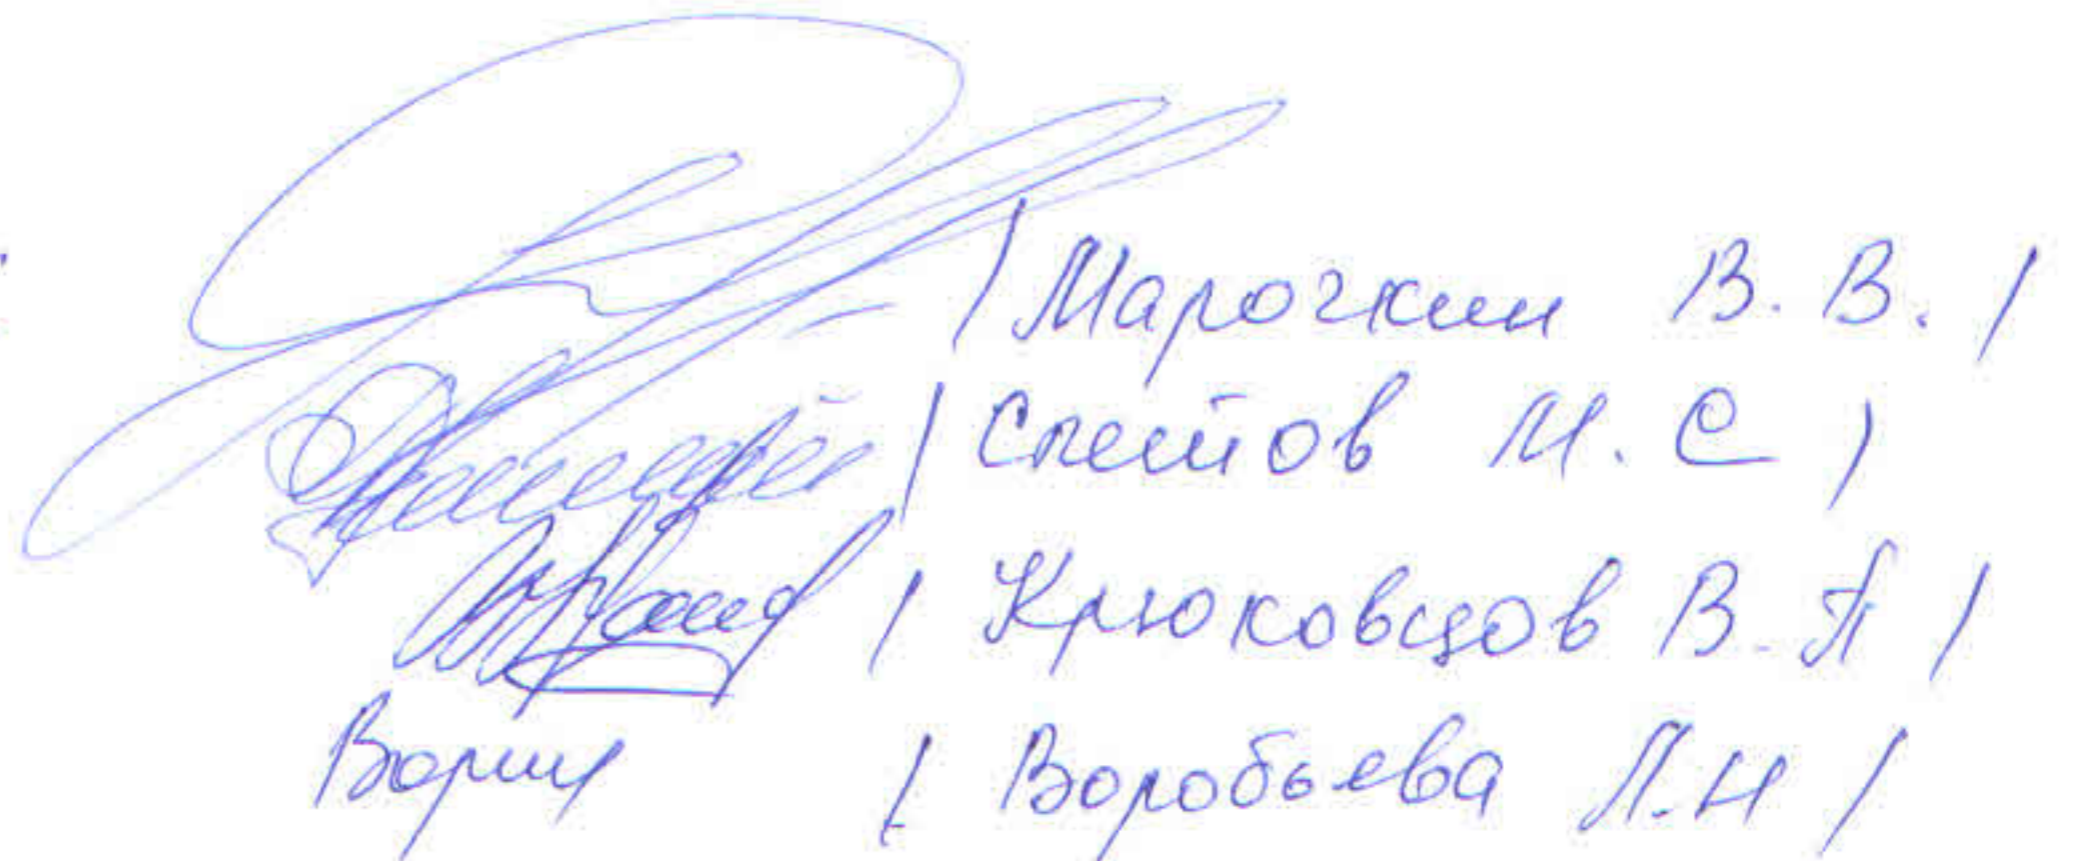 / Марочкин В. В. /
М. С /
/ Крюковцов В. А /
/ Воробьева Л.Н /